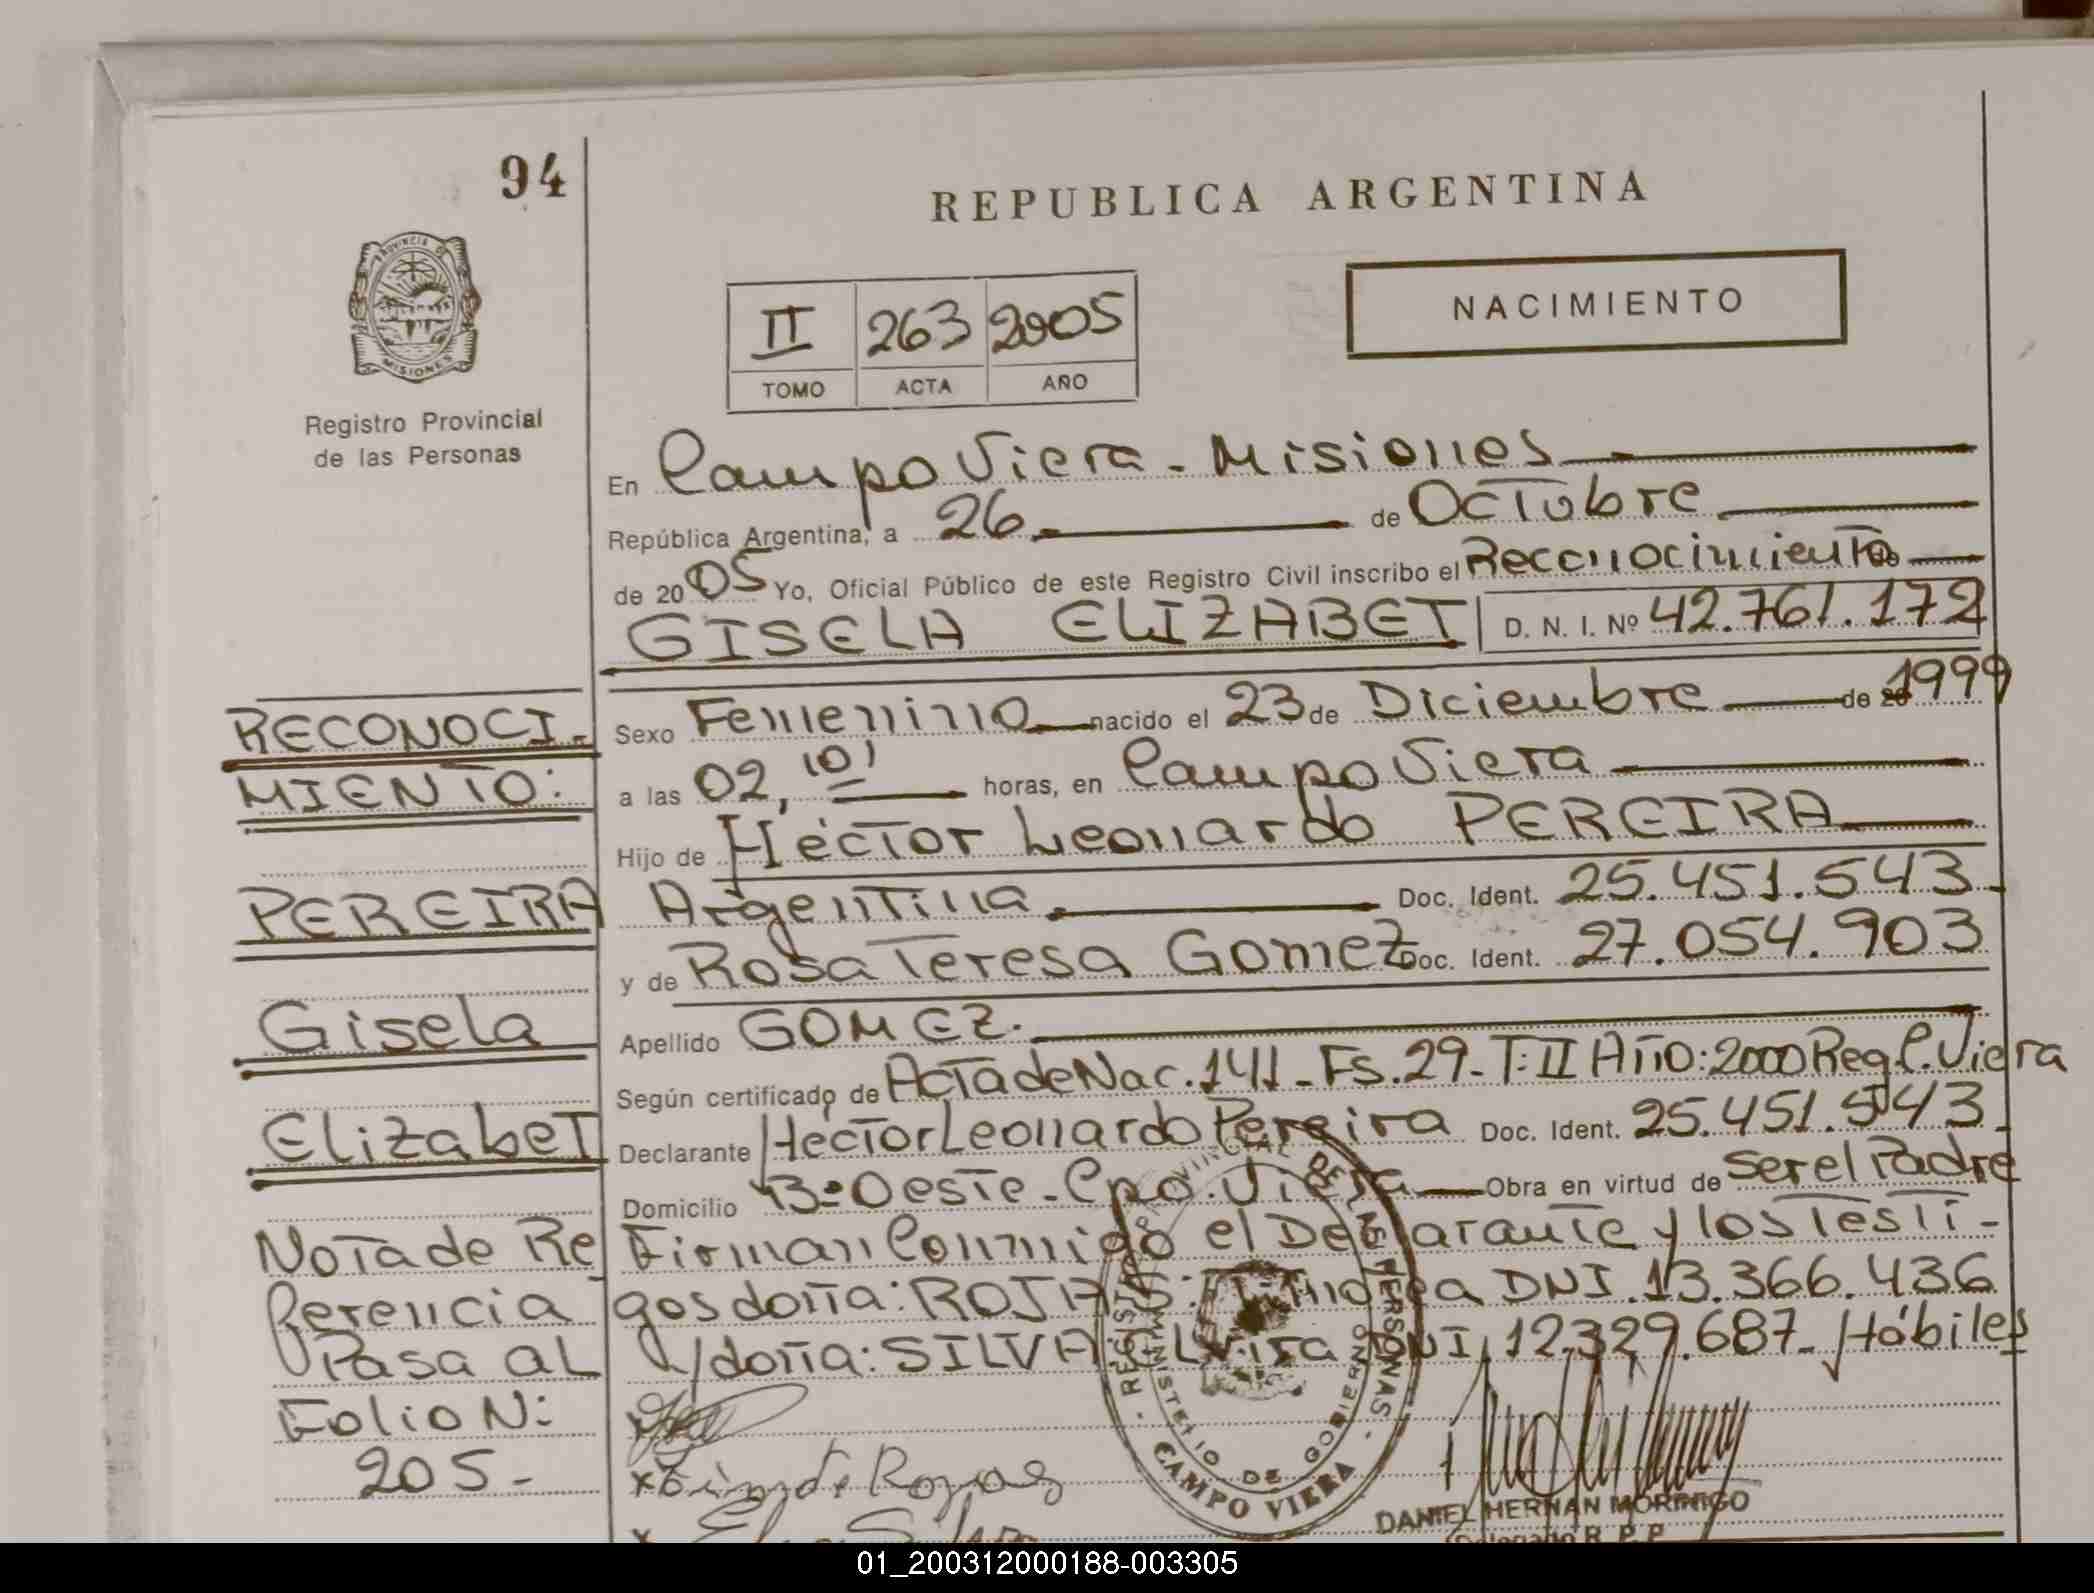 94
REPUBLICA ARGENTINA
PROVINCIA DE
MISIONES
Registro Provincial
de las Personas
II 263 2005
TOMO ACTA AÑO
NACIMIENTO
En Campo Viera - Misiones
República Argentina, a 26 de Octubre
de 2005 Yo, Oficial Público de este Registro Civil inscribo el Reconocimiento de
GISELA ELIZABET D. N. I. Nº 42.761.172
Sexo Femenino nacido el 23 de Diciembre de 20 1999
a las 02,10' horas, en Campo Viera
Hijo de Héctor Leonardo PEREIRA
Argentina Doc. Ident. 25.451.543
y de Rosa Teresa Gomez Doc. Ident. 27.054.903
Apellido GOMEZ.
Según certificado de Acta de Nac. 141 - Fs. 29 - T: II Año: 2000 Reg. C. Viera
Declarante Hector Leonardo Pereira Doc. Ident. 25.451.543
Domicilio Bº Oeste - Cpo. Viera Obra en virtud de ser el Padre
Firman Conmigo el Declarante y los Testi-
gos doña: ROJAS DNI. 13.366.436
y doña: SILVA Elvira DNI 12.329.687 - Hábiles
RECONOCI-
MIENTO:
PEREIRA
Gisela
Elizabet
Nota de Re
ferencia
Pasa al
Folio N:
205-
REGISTRO PROVINCIAL DE LAS PERSONAS
MINISTERIO DE GOBIERNO
CAMPO VIERA
x de Rojas
x Silva
DANIEL HERNAN MORINIGO
Delegado R. P. P.
01_200312000188-003305